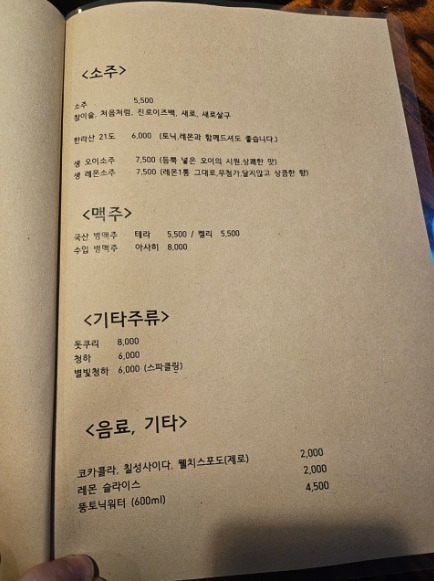 <소주>
소주 5,500
참이슬, 처음처럼, 진로이즈백, 새로, 새로살구
한라산 21도 6,000 (토닉,레몬과 함께드셔도 좋습니다.)
생 오이소주 7,500 (듬뿍 넣은 오이의 시원,상쾌한 맛)
생 레몬소주 7,500 (레몬1통 그대로,무첨가,달지않고 상큼한 향)
<맥주>
국산 병맥주 테라 5,500 / 켈리 5,500
수입 병맥주 아사히 8,000
<기타주류>
돗쿠리 8,000
청하 6,000
별빛청하 6,000 (스파클링)
<음료, 기타>
코카콜라, 칠성사이다, 웰치스포도(제로) 2,000
레몬 슬라이스 2,000
뚱토닉워터 (600ml) 4,500